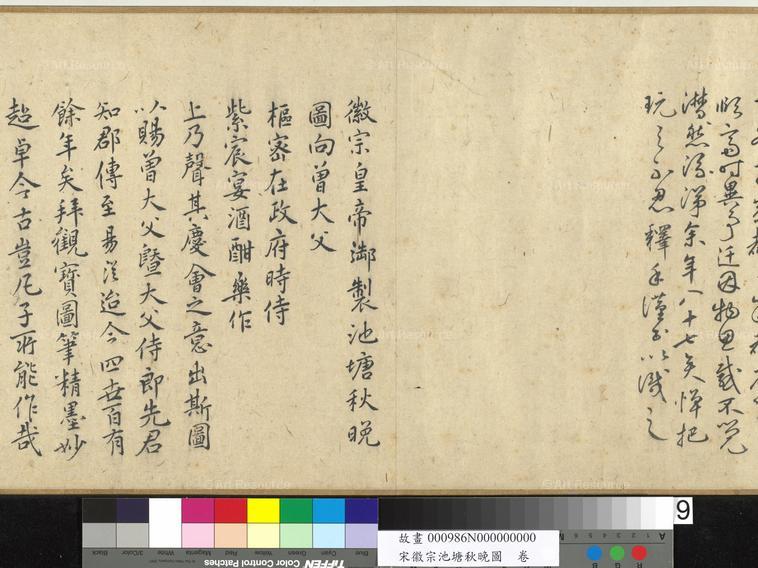 時異事迁因物思感不覺
潸然流涕余年八十七矣惮把
玩之不忍釋手謹書以識之
徽宗皇帝御製池塘秋晚
圖向曾大父
樞密在政府時侍
紫宸宴酒酣樂作
上乃聲其慶會之意出斯圖
以賜曾大父暨大父侍郎先君
知郡傳至易從迨今四世百有
餘年矣拜觀寶圖筆精墨妙
超卓今古豈凡子所能作哉
Black
3/Color
White
Magenta
Red
Yellow
Green
Cyan
Blue
TIFFEN Color Control Patches
故畫 000986N000000000
宋徽宗池塘秋晚圖 卷
A 1 2 3 4 5 6
B G R
9
© Art Resource